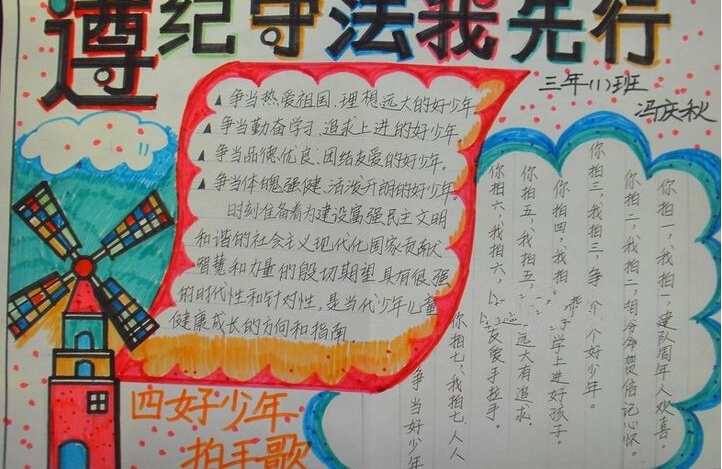 遵纪守法我先行
三年(1)班
冯庆秋
▲争当热爱祖国、理想远大的好少年
▲争当勤奋学习、追求上进的好少年。
▲争当品德优良、团结友爱的好少年。
▲争当体魄强健、活泼开朗的好少年。
时刻准备着为建设富强民主文明
和谐的社会主义现代化国家贡献
智慧和力量的殷切期望具有很强
的时代性和针对性,是当代少年儿童
健康成长的方向和指南。
你拍一,我拍一,建队周年人欢喜。
你拍二,我拍二,胡爷爷贺信记心怀。
你拍三,我拍三,争 个个好少年。
你拍四,我拍 学上进好孩子。
你拍五,我拍五, 远大有追求。
你拍六,我拍六, 友爱手拉手。
你拍七,我拍七,人人
争当好少年
四好少年
拍手歌